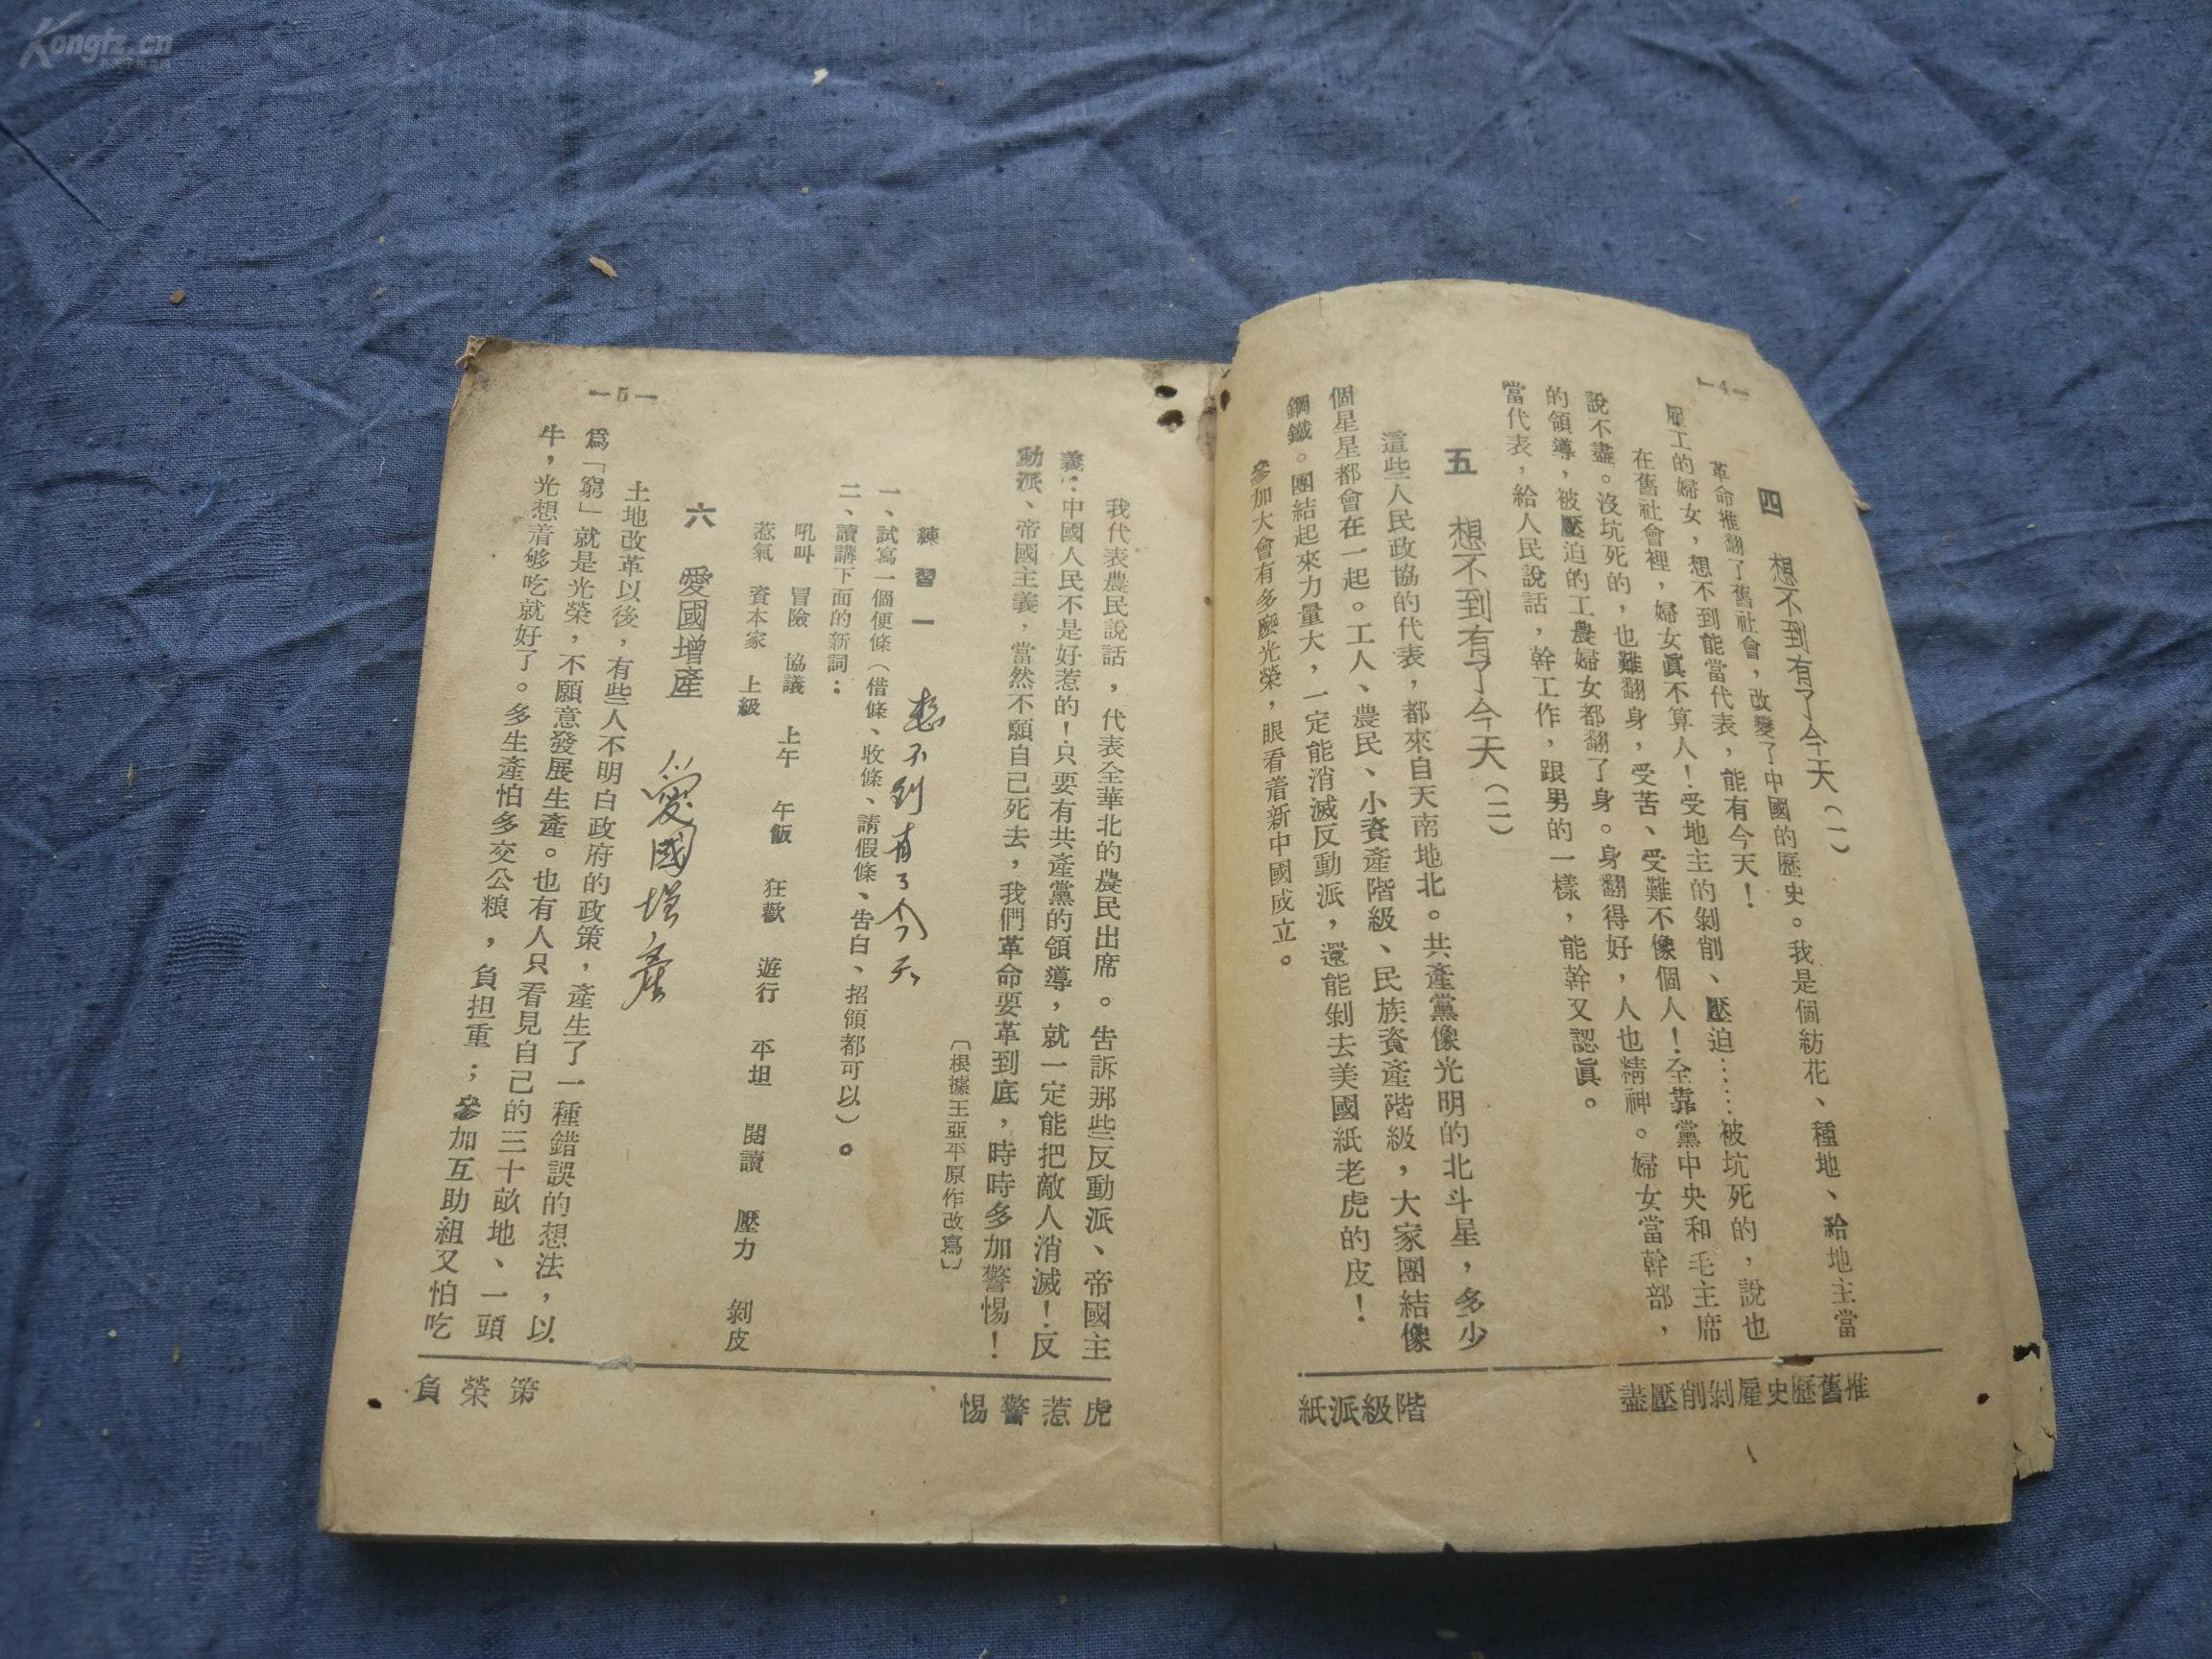 —4—
四　想不到有了今天（一）
革命推翻了舊社會，改變了中國的歷史。我是個紡花、種地、給地主當
雇工的婦女，想不到能當代表，能有今天！
在舊社會裡，婦女眞不算人！受地主的剝削、壓迫……被坑死的，說也
說不盡。沒坑死的，也難翻身，受苦、受難不像個人！全靠黨中央和毛主席
的領導，被壓迫的工農婦女都翻了身。身翻得好，人也精神。婦女當幹部，
當代表，給人民說話，幹工作，跟男的一樣，能幹又認眞。
五　想不到有了今天（二）
這些人民政協的代表，都來自天南地北。共產黨像光明的北斗星，多少
個星星都會在一起。工人、農民、小資產階級、民族資產階級，大家團結像
鋼鐵。團結起來力量大，一定能消滅反動派，還能剝去美國紙老虎的皮！
參加大會有多麼光榮，眼看着新中國成立。
推舊歷史雇剝削壓盡
階級派紙
我代表農民說話，代表全華北的農民出席。告訴那些反動派、帝國主
義：中國人民不是好惹的！只要有共產黨的領導，就一定能把敵人消滅！反
動派、帝國主義，當然不願自己死去，我們革命要革到底，時時多加警惕！
〔根據王亞平原作改寫〕
練習一
想不到有了今天
一、試寫一個便條（借條、收條、請假條、告白、招領都可以）。
二、讀講下面的新詞：
吼叫　冒險　協議　上午　午飯　狂歡　遊行　平坦　閱讀　壓力　剝皮
惹氣　資本家　上級
六　愛國增產
愛國增產
土地改革以後，有些人不明白政府的政策，產生了一種錯誤的想法，以
爲「窮」就是光榮，不願意發展生產。也有人只看見自己的三十畝地、一頭
牛，光想着够吃就好了。多生產怕多交公粮，負担重；參加互助組又怕吃
虎惹警惕
策榮負
—5—
Kongfz.cn